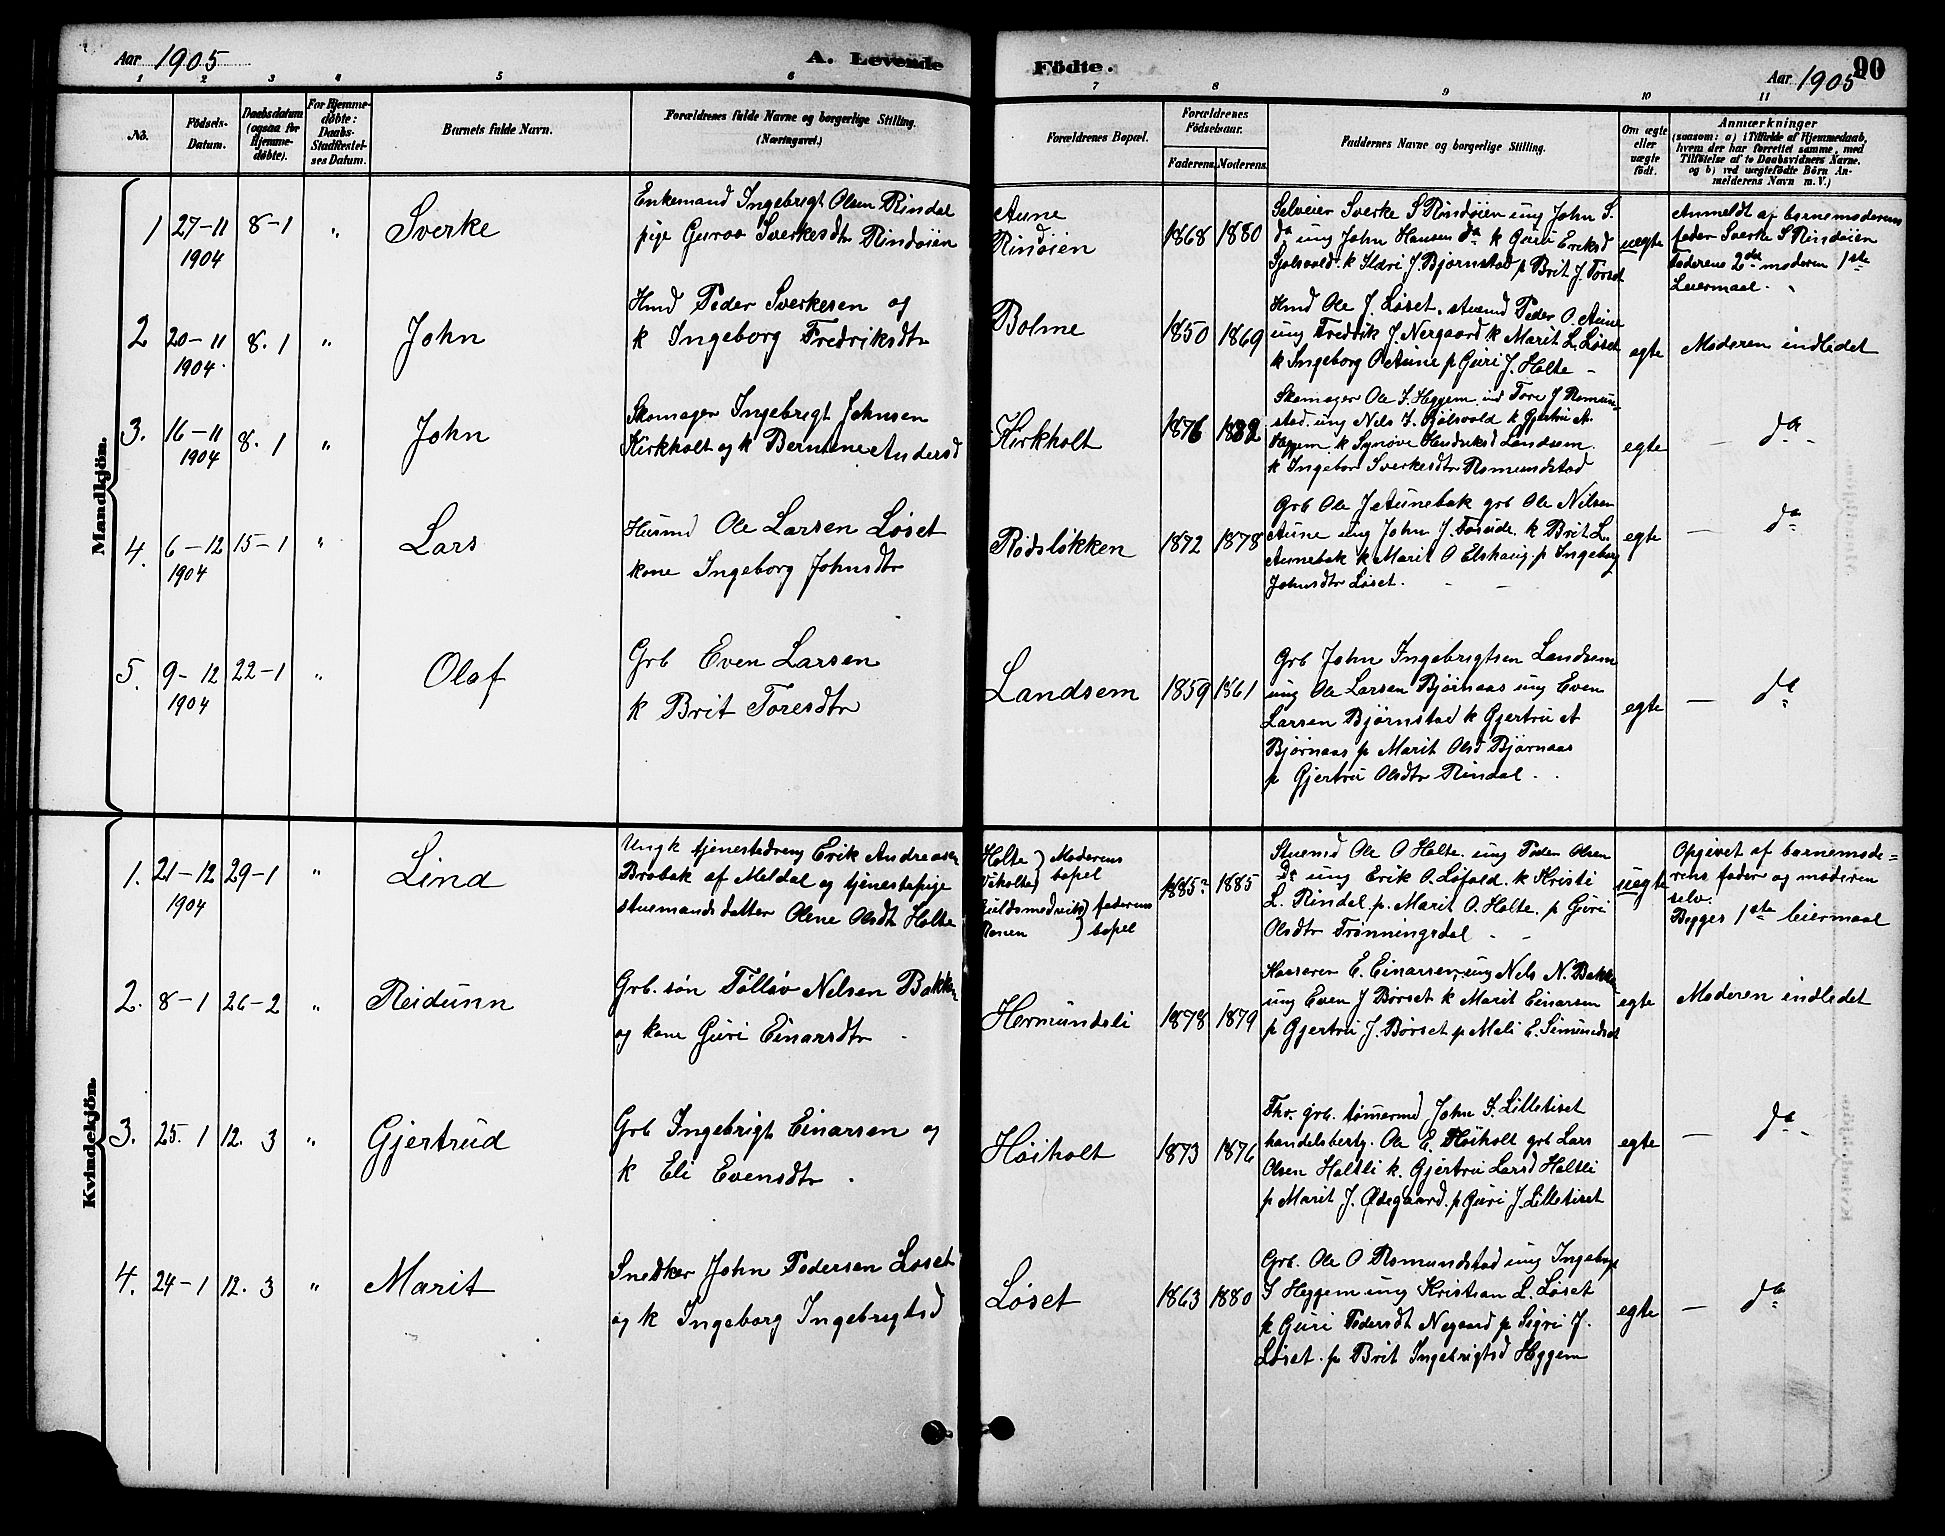 Aar 1905 A. Levende Födte. Aar 1905 90
1 2 3 4 5 6 7 8 9 10 11
No.
Födsels-
Datum.
Daabsdatum
(ogsaa for
Hjemme-
døbte).
For Hjemme-
døbte:
Daabs-
Stadfæstel-
ses Datum.
Barnets fulde Navn.
Forældrenes fulde Navne og borgerlige Stilling.
(Næringsvei.)
Forældrenes Bopæl.
Forældrenes
Födselsaar.
Faderens. Moderens.
Faddernes Navne og borgerlige Stilling.
Om ægte
eller
uægte
født.
Anmærkninger
(saasom: a) i Tilfælde af Hjemmedaab,
hvem der har forrettet samme, med
Tilföielse af to Daabsvidners Navne.
og b) ved uægtefødte Börn An-
melderens Navn m. V.)
Mandkjön.
1 27-11
1904
8-1 " Sverke
Enkemand Ingebrigt Olsen Rindal
pige Guroo Sverkesdtr Rindøien
Aune
Rindøien
1868 1880
Selveier Sverke S Rindøien ung John S.
da ung John Hansen da k Guru Eriksd
Sjølsvold. k Ildri J. Bjørnstad p Brit J. Torset
uegte
Anmeldt af barnemoderens
fader Sverke S Rindøien
Faderens 2det moderen 1ste
Leiermaal.
2 20-11
1904.
8. 1 " John
Hmd Peder Sverkesen og
k Ingeborg Fredriksdtr
Bolme
1850 1869
Hmd Ole J. Løset. stuemd Peder O. Aune
ung Fredrik J. Nergaard k Marit L. Løset
k Ingeborg O Aune p Guri J. Holte -
egte
Moderen indledet
3. 16-11
1904
8. 1 " John
Skomager Ingebrigt Johnsen
Kirkholt og k Berntine Andersd
Kirkholt
1876 1882
Skomager Ole I. Heggem ind Tore J Romun-
stad ung Nils I. Sjølsvold k Gjertru A.
Heggem. k Synøve Hendriksd Landsem.
k Ingebor Sverkesdtr Romundstad
egte
- da -
4. 6-12
1904
15-1 " Lars
Husmd Ole Larsen Løset
kone Ingeborg Johnsdtr
Rødsløkken
1872 1878
Grb Ole J Aunebak grb Ole Nilsen
Aune ung John J. Torseide k Brit L.
Aunebak k Marit O Elshaug. p Ingeborg
Johnsdtr Løset.
egte
- da
5. 9-12
1904
22-1 " Olaf
Grb Even Larsen
k Brit Toresdtr
Landsem
1859 1861
Grb John Ingebrigtsen Landsem
ung Ole Larsen Bjørnaas ung Even
Larsen Bjørnstad k Gjertru A
Bjørnaas p Marit Olsd Bjørnaas
p Gjertru Olsdtr Rindal.
egte
- da
Kvindekjön.
1. 21-12
1904
29-1 " Lind
Ungk tjenestedreng Erik Andreasen
Brobak af Meldal og tjenestepige
stuemandsdatter Olene Olsdt Holte
Holte ) Moderens
) bopel
) faderens
) bopel
1885? 1885
Stuemd Ole O Holte. ung Peder Olsen
Da ung Erik O. Løfald. k Kristi
L. Rindal p. Marit O. Holte. p Guri
Olsdtr Trønningsdal
uegte
Opgivet af barnemode=
rens fader og moderen
selv.
Begges 1ste leiermaal
2. 8-1 26-2 " Reidunn
Grb. søn Tølløv Nelsen Bakken
og kone Guri Einarsdtr
Hermundsli
1878 1879
E. Einarsen, ung Nels N. Bakken
ung Even J Børset k Marit Einarsen
p Gjertru J. Børset p Mali E. Simundset
egte
Moderen indledet
3. 25. 1 12. 3 " Gjertrud
Grb Ingebrigt Einarsen og
k Eli Evensdtr
Høiholt
1873 1876
Fhv. grb. tømermd John S. Lilletiset
handelsbetj. Ole E. Høiholt grb Lars
Olsen Holtli k. Gjertru Larsd Holtli
p Marit J. Ødegaard. p Guri J. Lilletiset
egte
- da -
4. 24-1 12. 3 " Marit
Snedker John Pedersen Løset
og k Ingeborg Ingebrigtsd
Løset
1863 1880
Grb. Ole O Romundstad ung Ingebrigt
S Heggem ung Kristian L. Løset
k Guri Pedersdt Negaard p Sigri J.
Løset. p Brit Ingebrigtsd Heggem
egte
- da